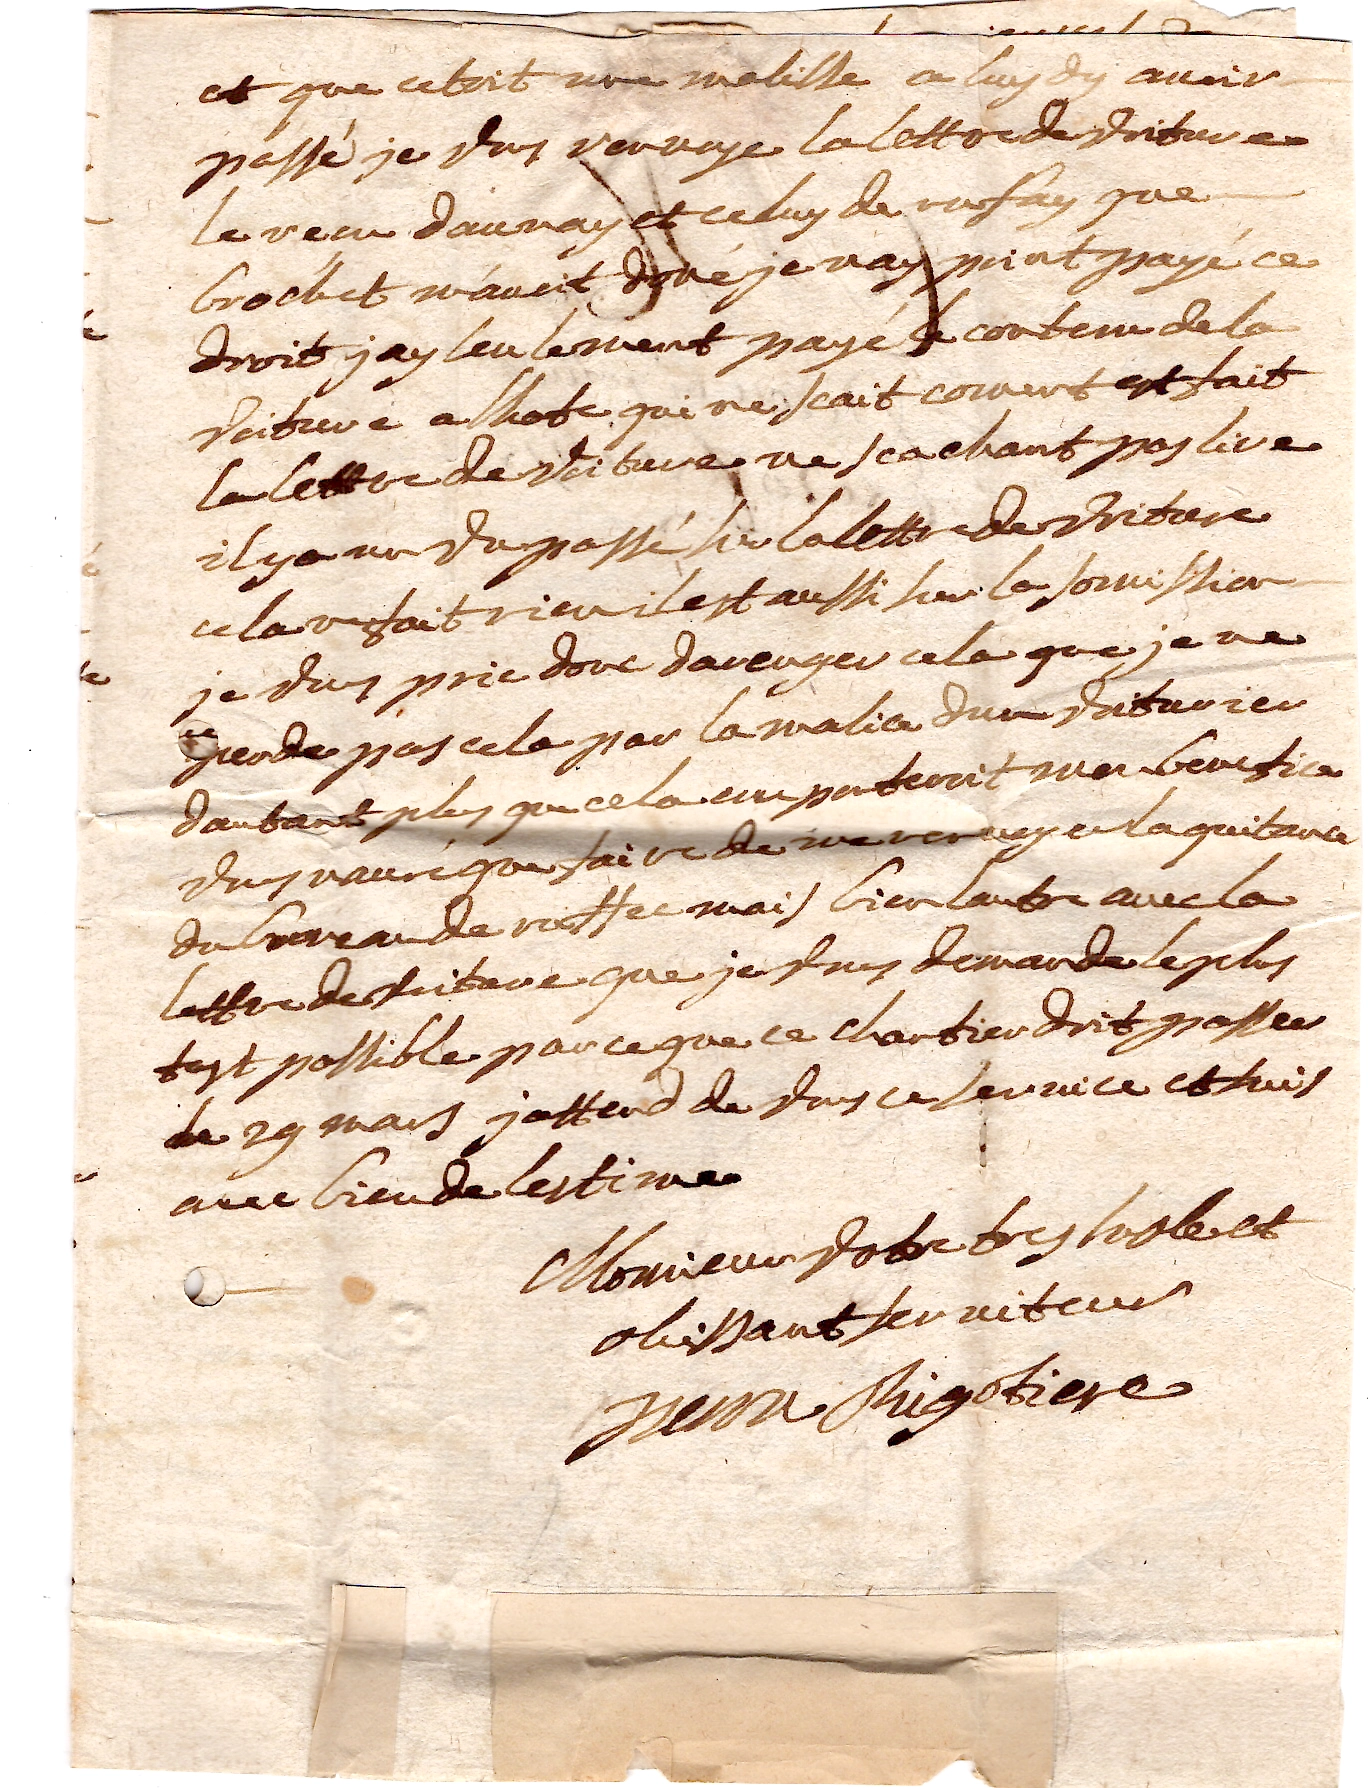 et que cetoit une malisse a luy dy avoir
passé je vous renvoye la lettre de voiture
le receu daunay et celuy de rufay que
brochet m'avoit doné je nay point payé ce
droit jay seulement payé le contenu de la
voiture a lhote qui ne scait coment est fait
la lettre de voiture ne scachant pas lire
il y a un vu passé sur la lettre de voiture
cela ne fait rien il est aussi sur la somission
je vous prie donc darenger cela que je ne
perde pas cela par la malice dun voiturier
dautant plus que cela emporteroit mon benefice
vous navré que faire de me renvoyer la quitance
du bureau de ruffec mais bien lautre avec la
lettre de voiture que je vous demande le plus
tost possible parce que ce chartier doit passer
le 29 mars jattend de vous ce service et suis
avec bien de lestime
Monsieur votre tres humble et
obeissant serviteur
Rigotiere